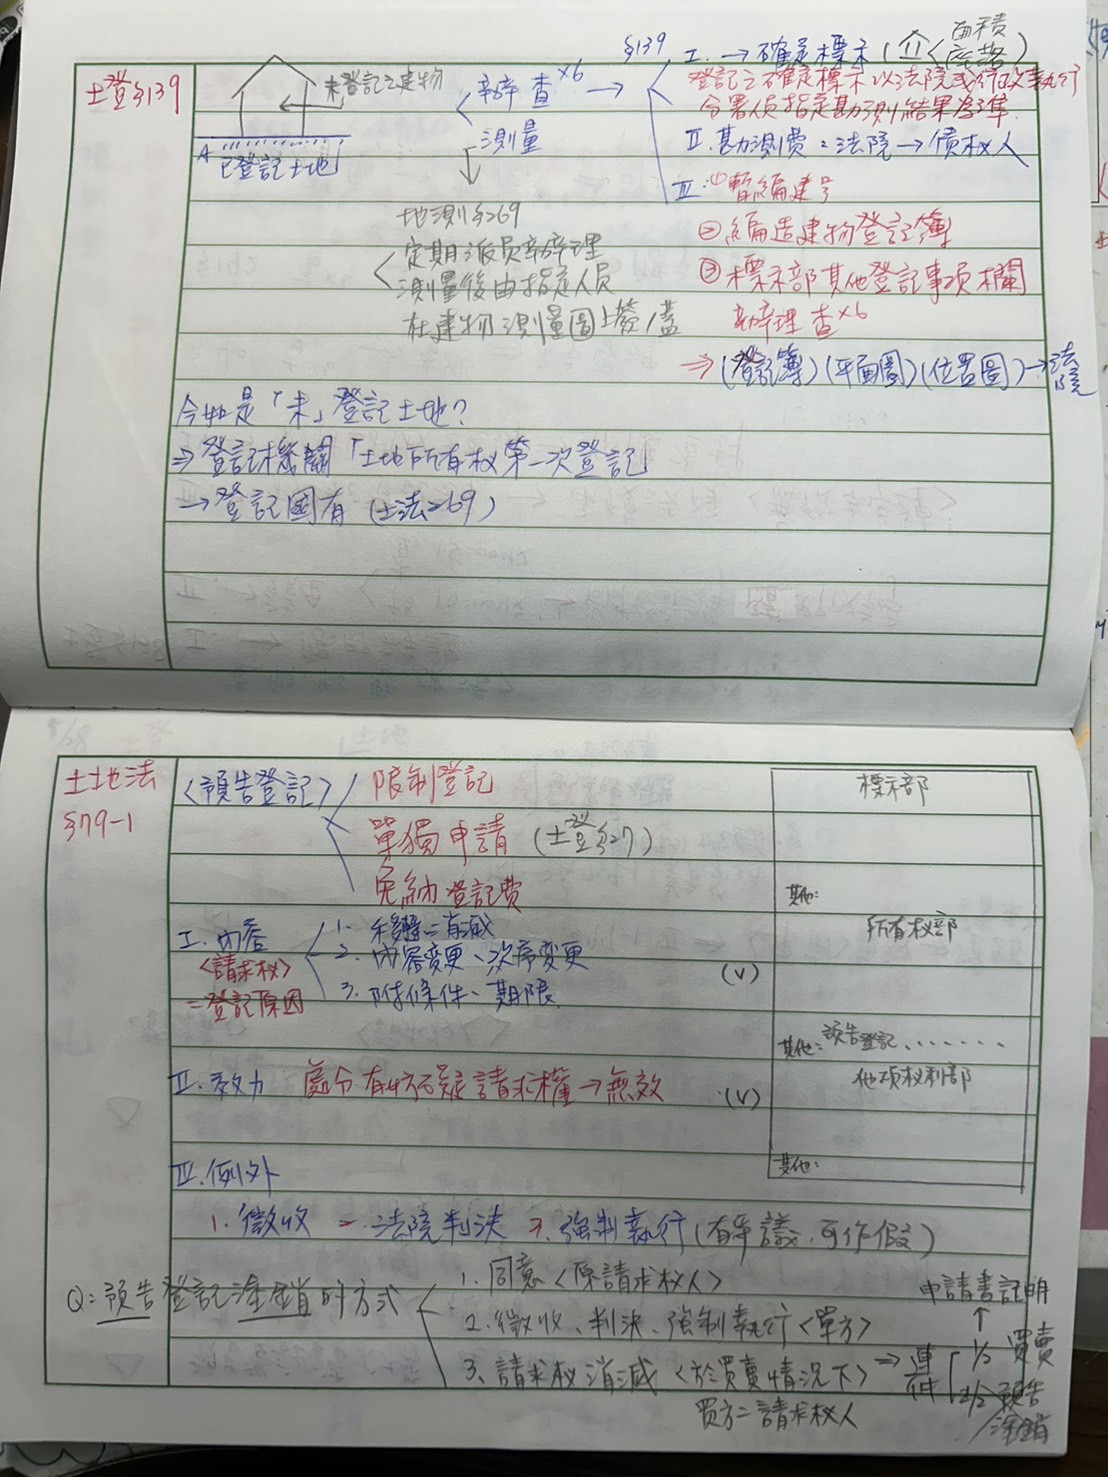 土登§139
未登記之建物
A 已登記土地
辦查×6 → §139
測量
地測§269
定期派員辦理
測量後由指定人員
在建物測量圖上簽/蓋
I. → 確定標示 (面積
座落)
登記之確定標示以法院或行政執行
分署人員指定勘測結果為準.
II. 勘測費：法院→債权人
III. ①暫編建号
②編造建物登記簿
③標示部其他登記事項欄
勘辦理查×6
⇒ (登記簿)(平面圖)(位置圖)→法院
今如是「未」登記土地?
⇒ 登記機關「土地所有权第一次登記
→ 登記國有 (土法269)
土地法
§79-1
〈預告登記〉
限制登記
單獨申請 (土登§27)
免納登記費
I. 內容
〈請求权〉
=登記原因
1. 移轉=消滅
2. 內容變更、次序變更
3. 附條件、期限
II. 效力 處分有妨碍請求權→無效
III. 例外
1. 徵收 =. 法院判決 3. 強制執行 (有爭議, 可作假)
標示部
其他:
所有权部
(V)
其他: 預告登記.......
他項权利部
(V)
其他:
Q: 預告登記塗銷的方式
1. 同意〈原請求权人〉
2. 徵收、判決、強制執行〈單方〉
3. 請求权消滅〈於買賣情況下〉⇒ 連件
買方=請求权人
申請書註明
1/2 買賣
2/2 預告
塗銷